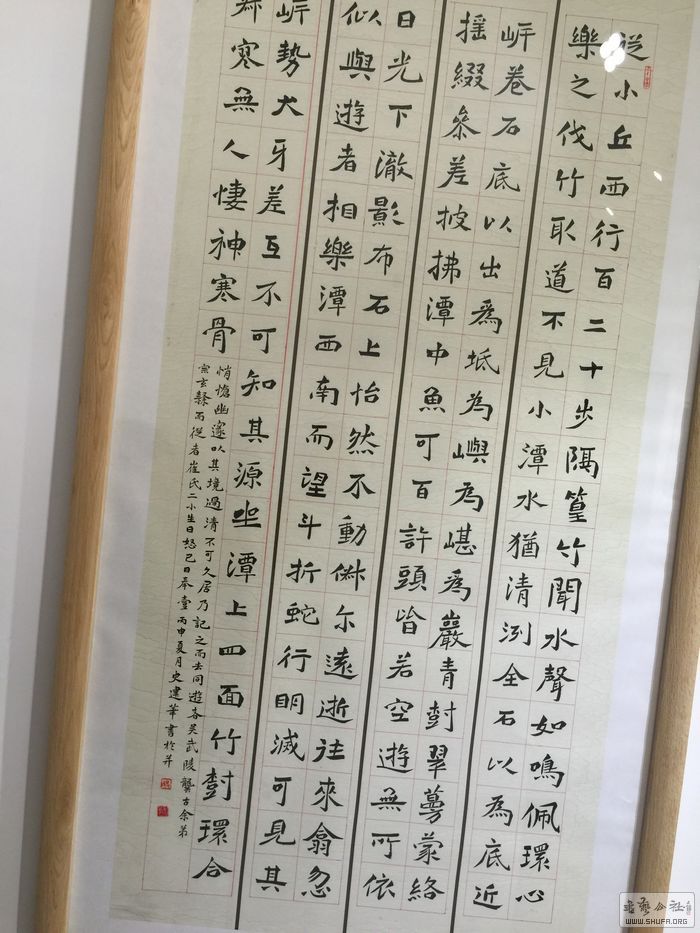 從小丘西行百二十步隔篁竹聞水聲如鳴佩環心
樂之伐竹取道不見小潭水猶清洌全石以為底近
岍卷石底以出為坻為嶼為嵁為巖青樹翠蔓蒙絡
搖綴參差披拂潭中魚可百許頭皆若空遊無所依
日光下澈影布石上怡然不動俶尔遠逝往來翕忽
似與遊者相樂潭西南而望斗折蛇行明滅可見其
岍勢犬牙差互不可知其源坐潭上四面竹樹環合
寂寒無人悽神寒骨
悄愴幽邃以其境過清不可久居乃記之而去同遊者吳武陵龔古余弟
宗玄隸而從者崔氏二小生曰恕己曰奉壹丙申夏月史建華書於并
書藝公社
WWW.SHUFA.ORG